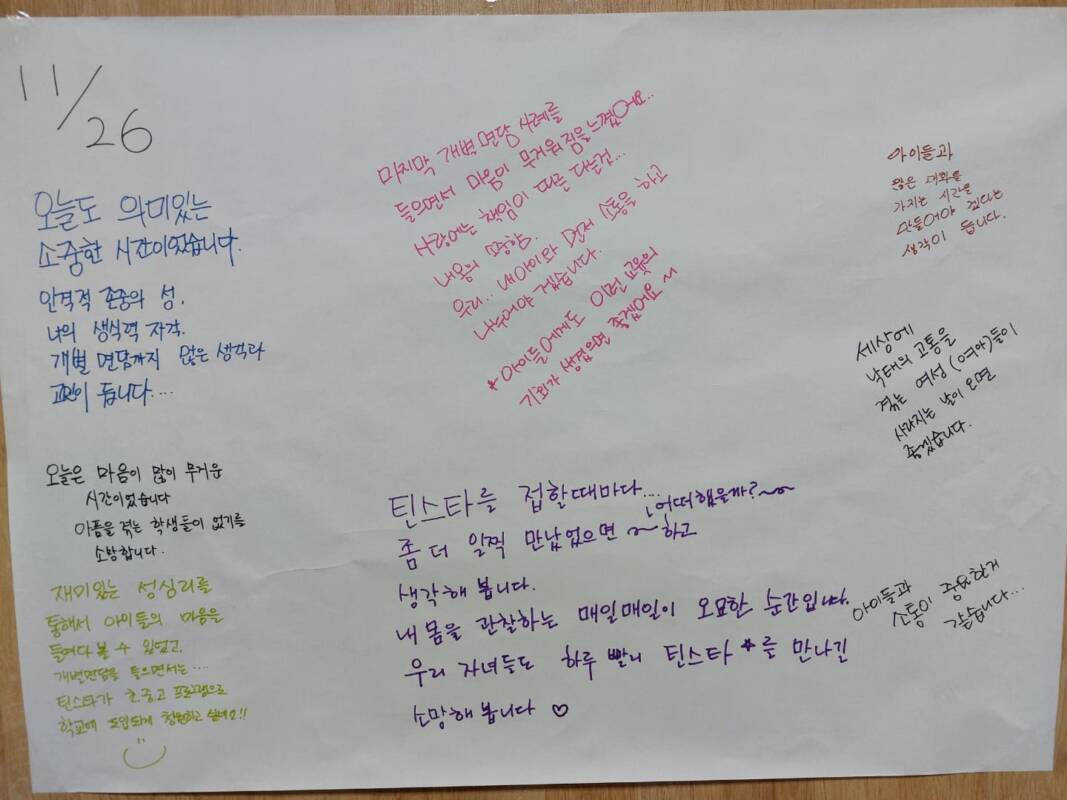 11/26
오늘도 의미있는
소중한 시간이었습니다.
인격적 존중의 성.
나의 생식력 자각.
개별 면담까지 많은 생각과
고민이 듭니다....
오늘은 마음이 많이 무거운
시간이었습니다
아픔을 겪는 학생들이 없기를
소망합니다.
재미있는 성심리를
통해서 아이들의 마음을
들여다 볼 수 있었고,
개별면담을 들으면서는....
틴스타가 초중고 프로그램으로
학교에 도입되게 청원하고 싶네요!!
마지막 개별 면담 사례를
들으면서 마음이 무거워 짐을 느꼈어요..
사랑에는 책임이 따른 다는것...
내용의 소중함.
우리.. 내아이와 먼저 소통을 하고
나누어야 겠습니다.
* 아이들에게도 이런 교육의
기회가 생겼으면 좋겠어요~
틴스타를 접할때마다...
좀 더 일찍 만났었으면 ~ 하고
어떠했을까?~~
생각해 봅니다.
내 몸을 관찰하는 매일매일이 오묘한 순간입니다.
우리 자녀들도 하루 빨리 틴스타*를 만나길
소망해 봅니다 ♡
아이들과
많은 대화를
가지는 시간을
만들어야 겠다는
생각이 듭니다.
세상에
낙태의 고통을
겪는 여성(여아)들이
사라지는 날이 오면
좋겠습니다.
아이들과
소통이 중요한거
같습니다...